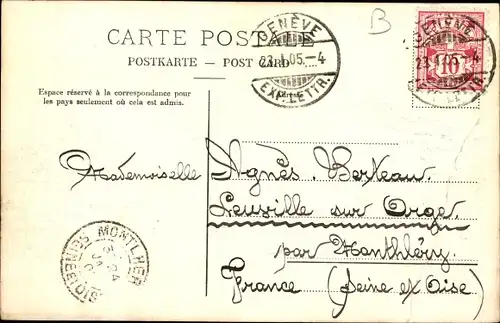 B
CARTE POSTALE
POSTKARTE — POST CARD
GENÈVE
23.I.05.-4
EXP. LETTR.
GENÈVE
23.I.05.-4
10
Espace réservé à la correspondance pour
les pays seulement où cela est admis.
Mademoiselle Agnès Berteau
Leuville sur Orge
par Monthléry
France (Seine et Oise)
MONTLHERY
SEINE-ET-OISE
24